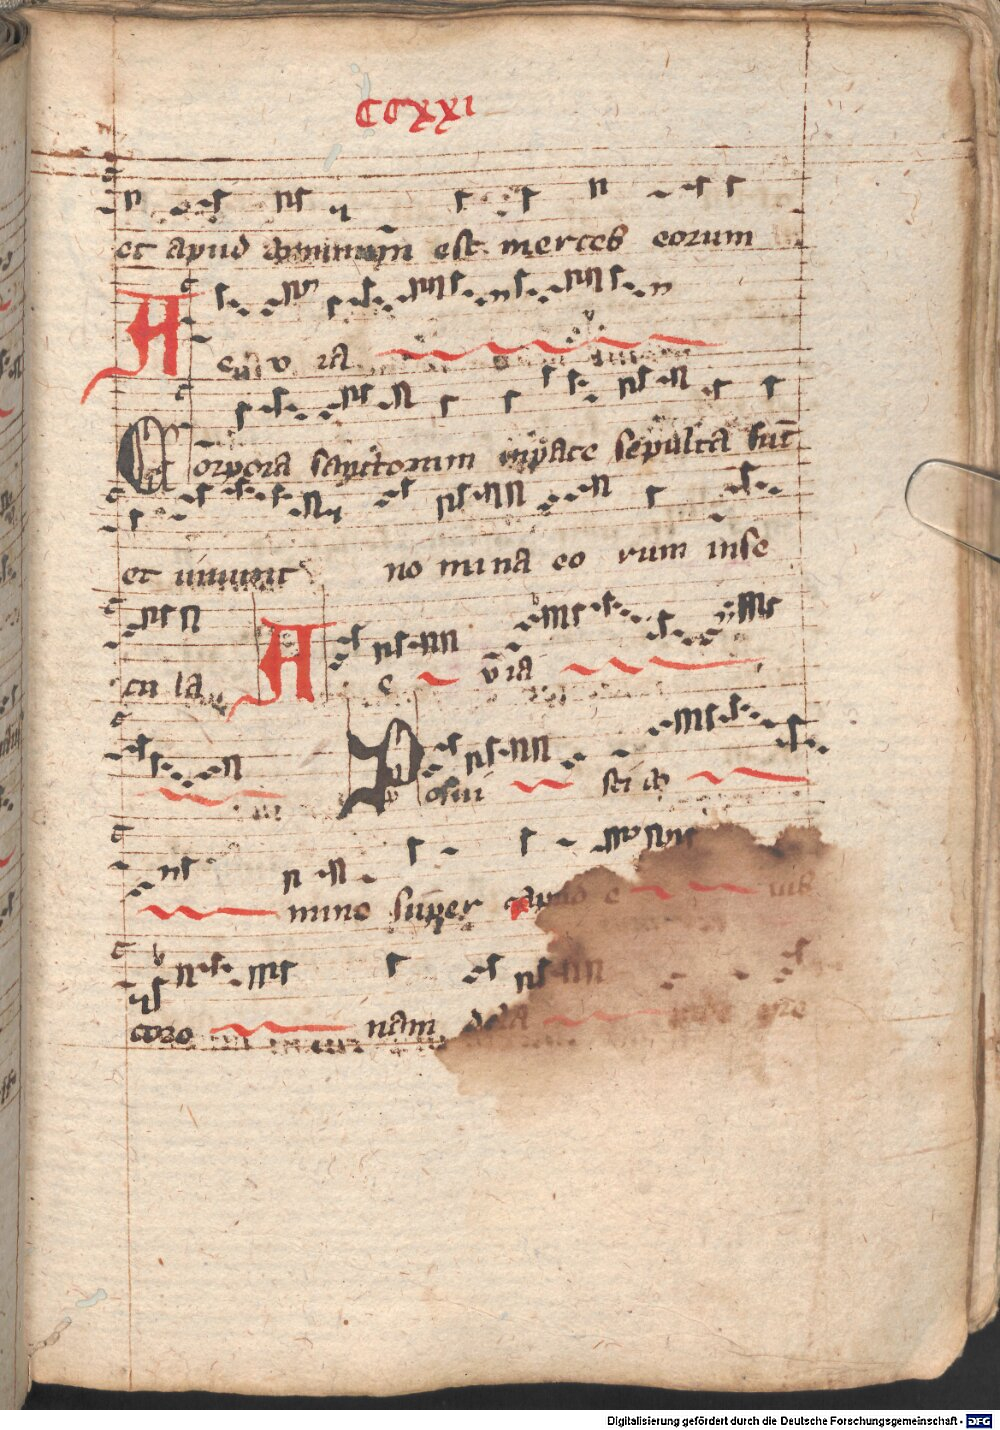 CCXXI
et apud dominum est merces eorum
A e v ia
Corpora sanctorum in pace sepulta sūt
et uiuunt no mina eo rum in se
cu la A e v ia
Posui sti do
mino super caput e ius
coro nam de la pre
Digitalisierung gefördert durch die Deutsche Forschungsgemeinschaft - DFG